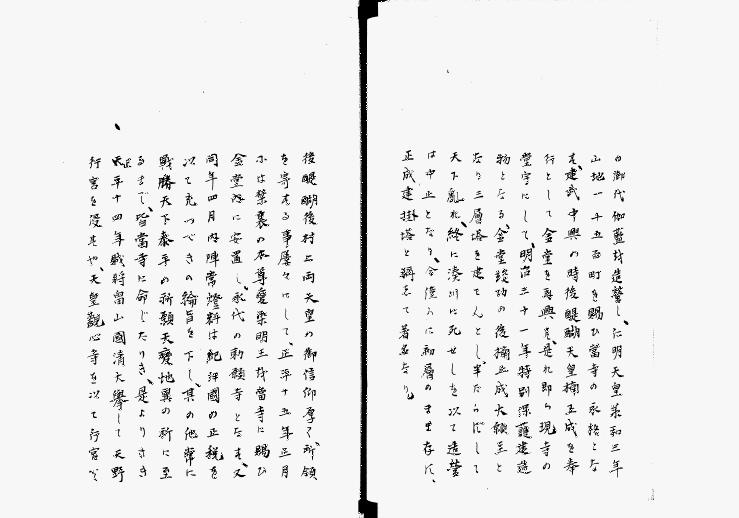 の御代伽藍を造營し、仁明天皇承和三年
山地一千五百町を賜ひ當寺の永領とな
す、建武中興の時後醍醐天皇楠正成を奉
行として金堂を再興す、是れ即ち現寺の
堂宇にして、明治三十一年特別保護建造
物となる、金堂竣功の後楠正成大願主と
なり三層塔を建てんとし、半ならずして
天下亂れ、終に湊川に死せしを以て造營
は中止となり、今僅かに初層のまま存す、
正成建掛塔と稱えて著名なり
後醍醐後村上両天皇の御信仰厚く、所領
を寄する事屡々にして、正平十五年正月
には禁裏の本尊愛染明王を當寺に賜ひ
金堂に安置し、永代の勅願寺となす、又
同年四月内陣常燈料は紀伊國の正税を
以て充つべきの綸旨を下し、其の他常に
戰勝天下泰平の祈願天變地異の祈に至
るまで、皆當寺に命じたりき、是よりさき
正平十四年賊將畠山國清大擧して天野
行宮を侵すや、天皇觀心寺を以て行宮と